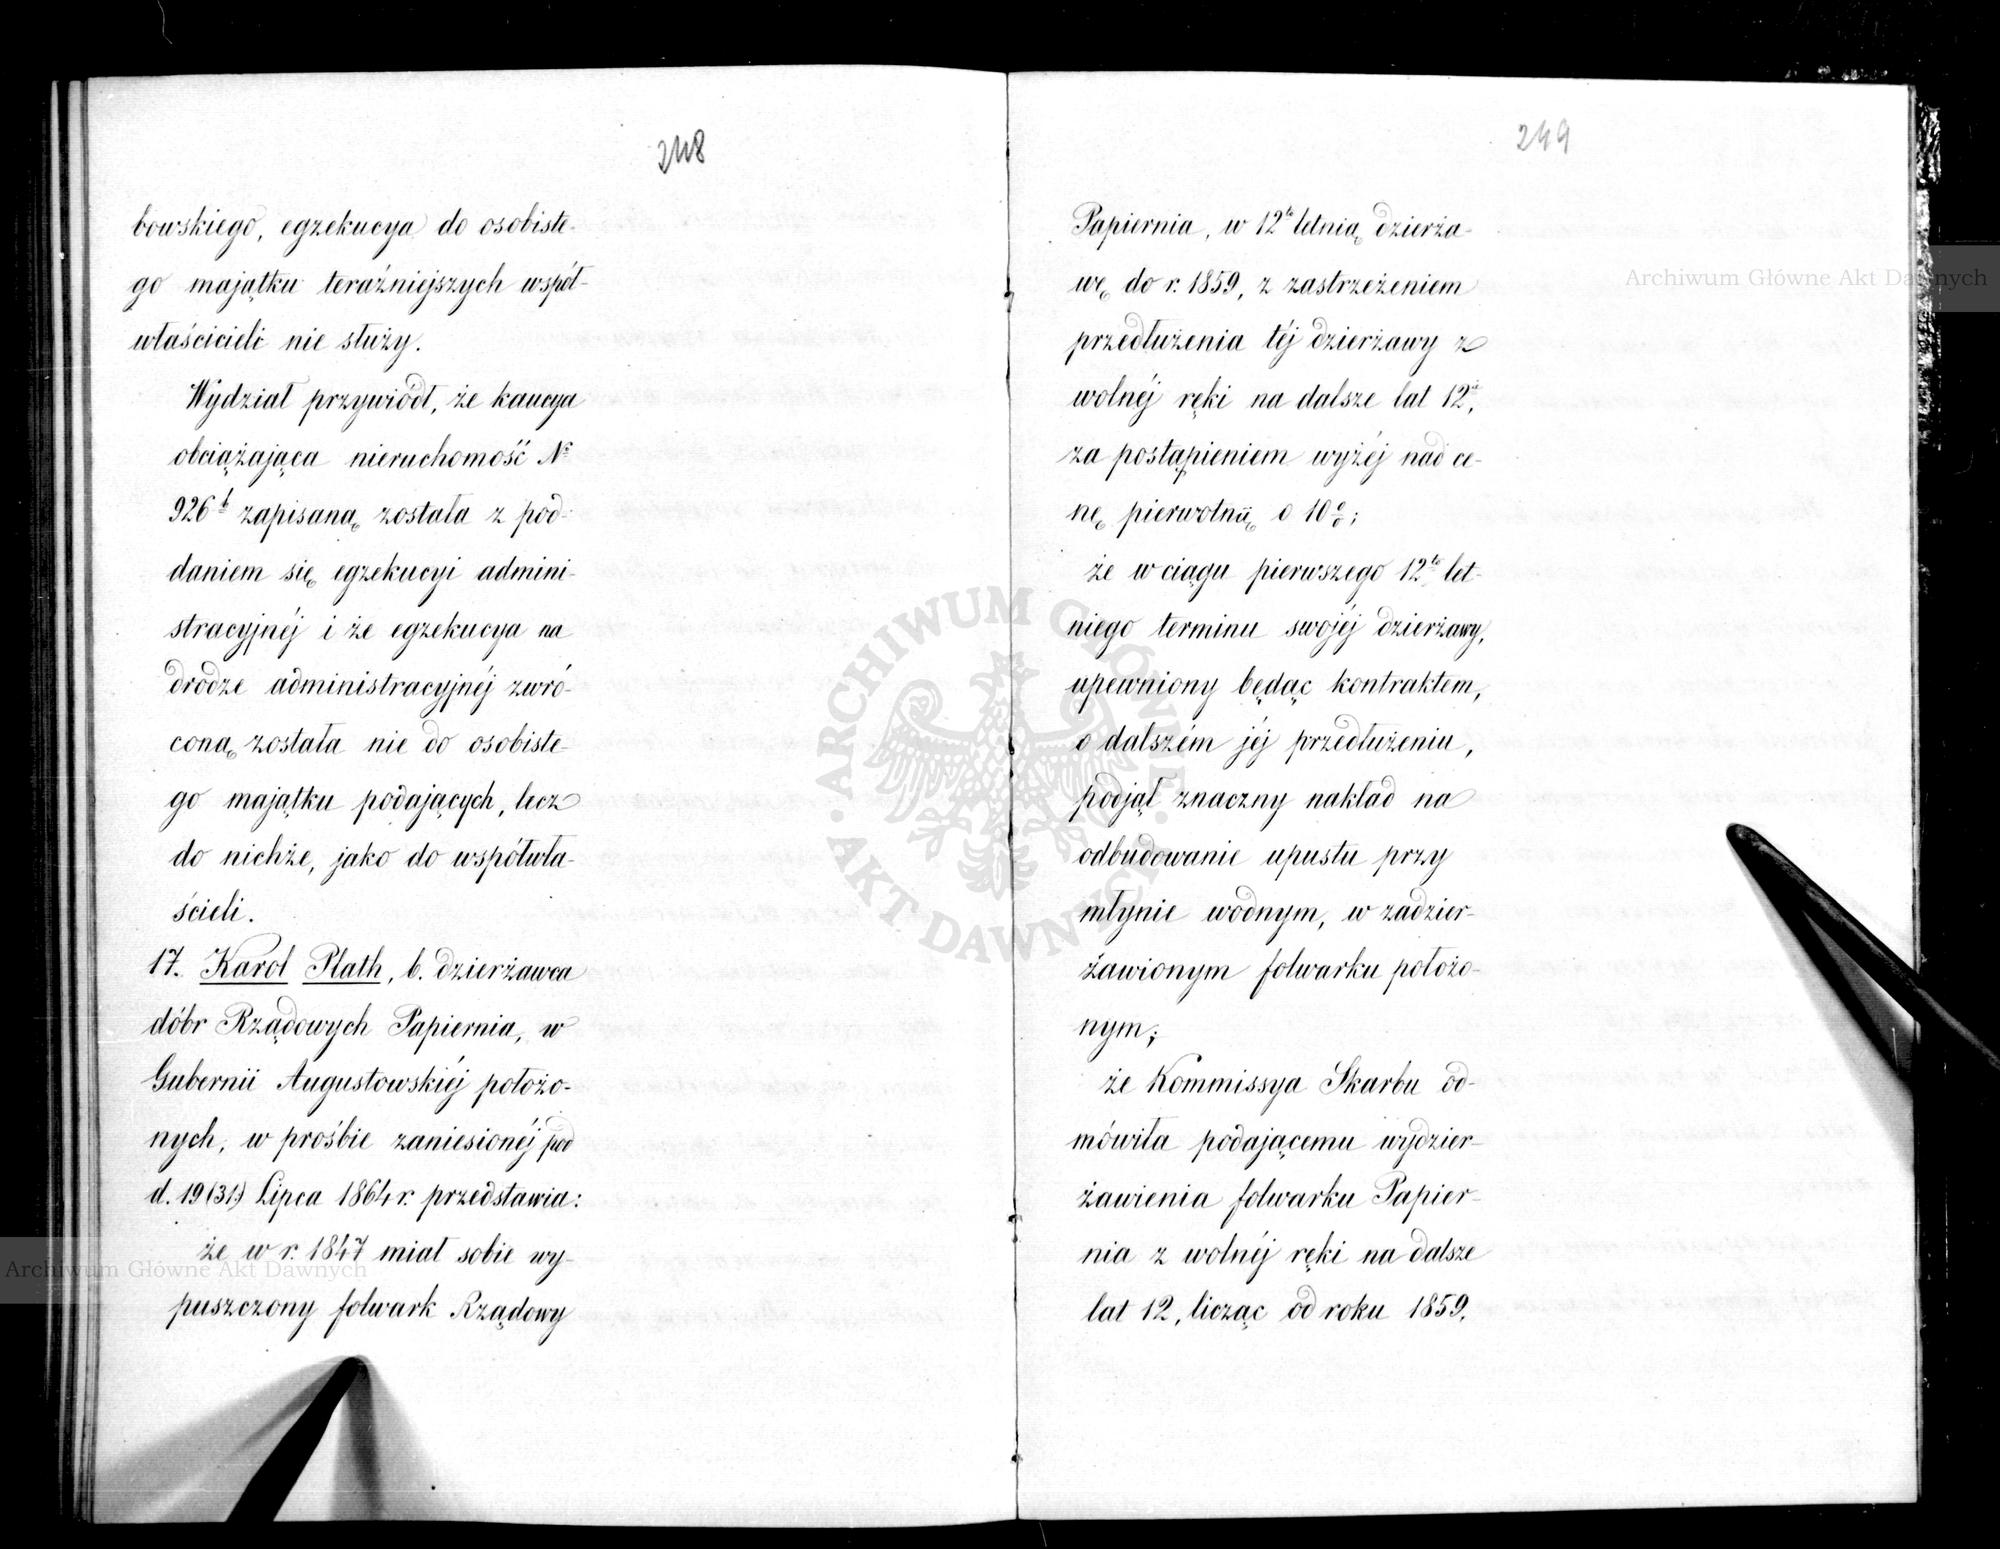 248
bowskiego, egzekucya do osobiste-
go majątku teraźniejszych współ-
właścicieli nie służy.
Wydział przywiódł, że kaucya
obciążająca nieruchomość №
926 b zapisaną została z pod-
daniem się egzekucyi admini-
stracyjnéj i że egzekucya na
drodze administracyjnéj zwró-
coną została nie do osobiste-
go majątku podających, lecz
do nichże, jako do współwła-
ścieli.
17. Karol Plath, b. dzierżawca
dóbr Rządowych Papiernia, w
Gubernii Augustowskiéj położo-
nych, w prośbie zaniesionéj pod
d. 19 (31) Lipca 1864 r. przedstawia:
że w r. 1847 miał sobie wy-
puszczony folwark Rządowy
249
Papiernia, w 12to letnią dzierża-
wę do r. 1859, z zastrzeżeniem
przedłużenia téj dzierżawy z
wolnéj ręki na dalsze lat 12,
za postąpieniem wyżéj nad ce-
nę pierwotną o 10%;
że w ciągu pierwszego 12to let-
niego terminu swojéj dzierżawy,
upewniony będąc kontraktem,
o dalszém jéj przedłużeniu,
podjął znaczny nakład na
odbudowanie upustu przy
młynie wodnym, w zadzier-
żawionym folwarku położo-
nym;
że Kommissya Skarbu od-
mówiła podającemu wydzier-
żawienia folwarku Papier-
nia z wolnéj ręki na dalsze
lat 12, licząc od roku 1859,
Archiwum Główne Akt Dawnych
Archiwum Główne Akt Dawnych
ARCHIWUM GŁÓWNE AKT DAWNYCH